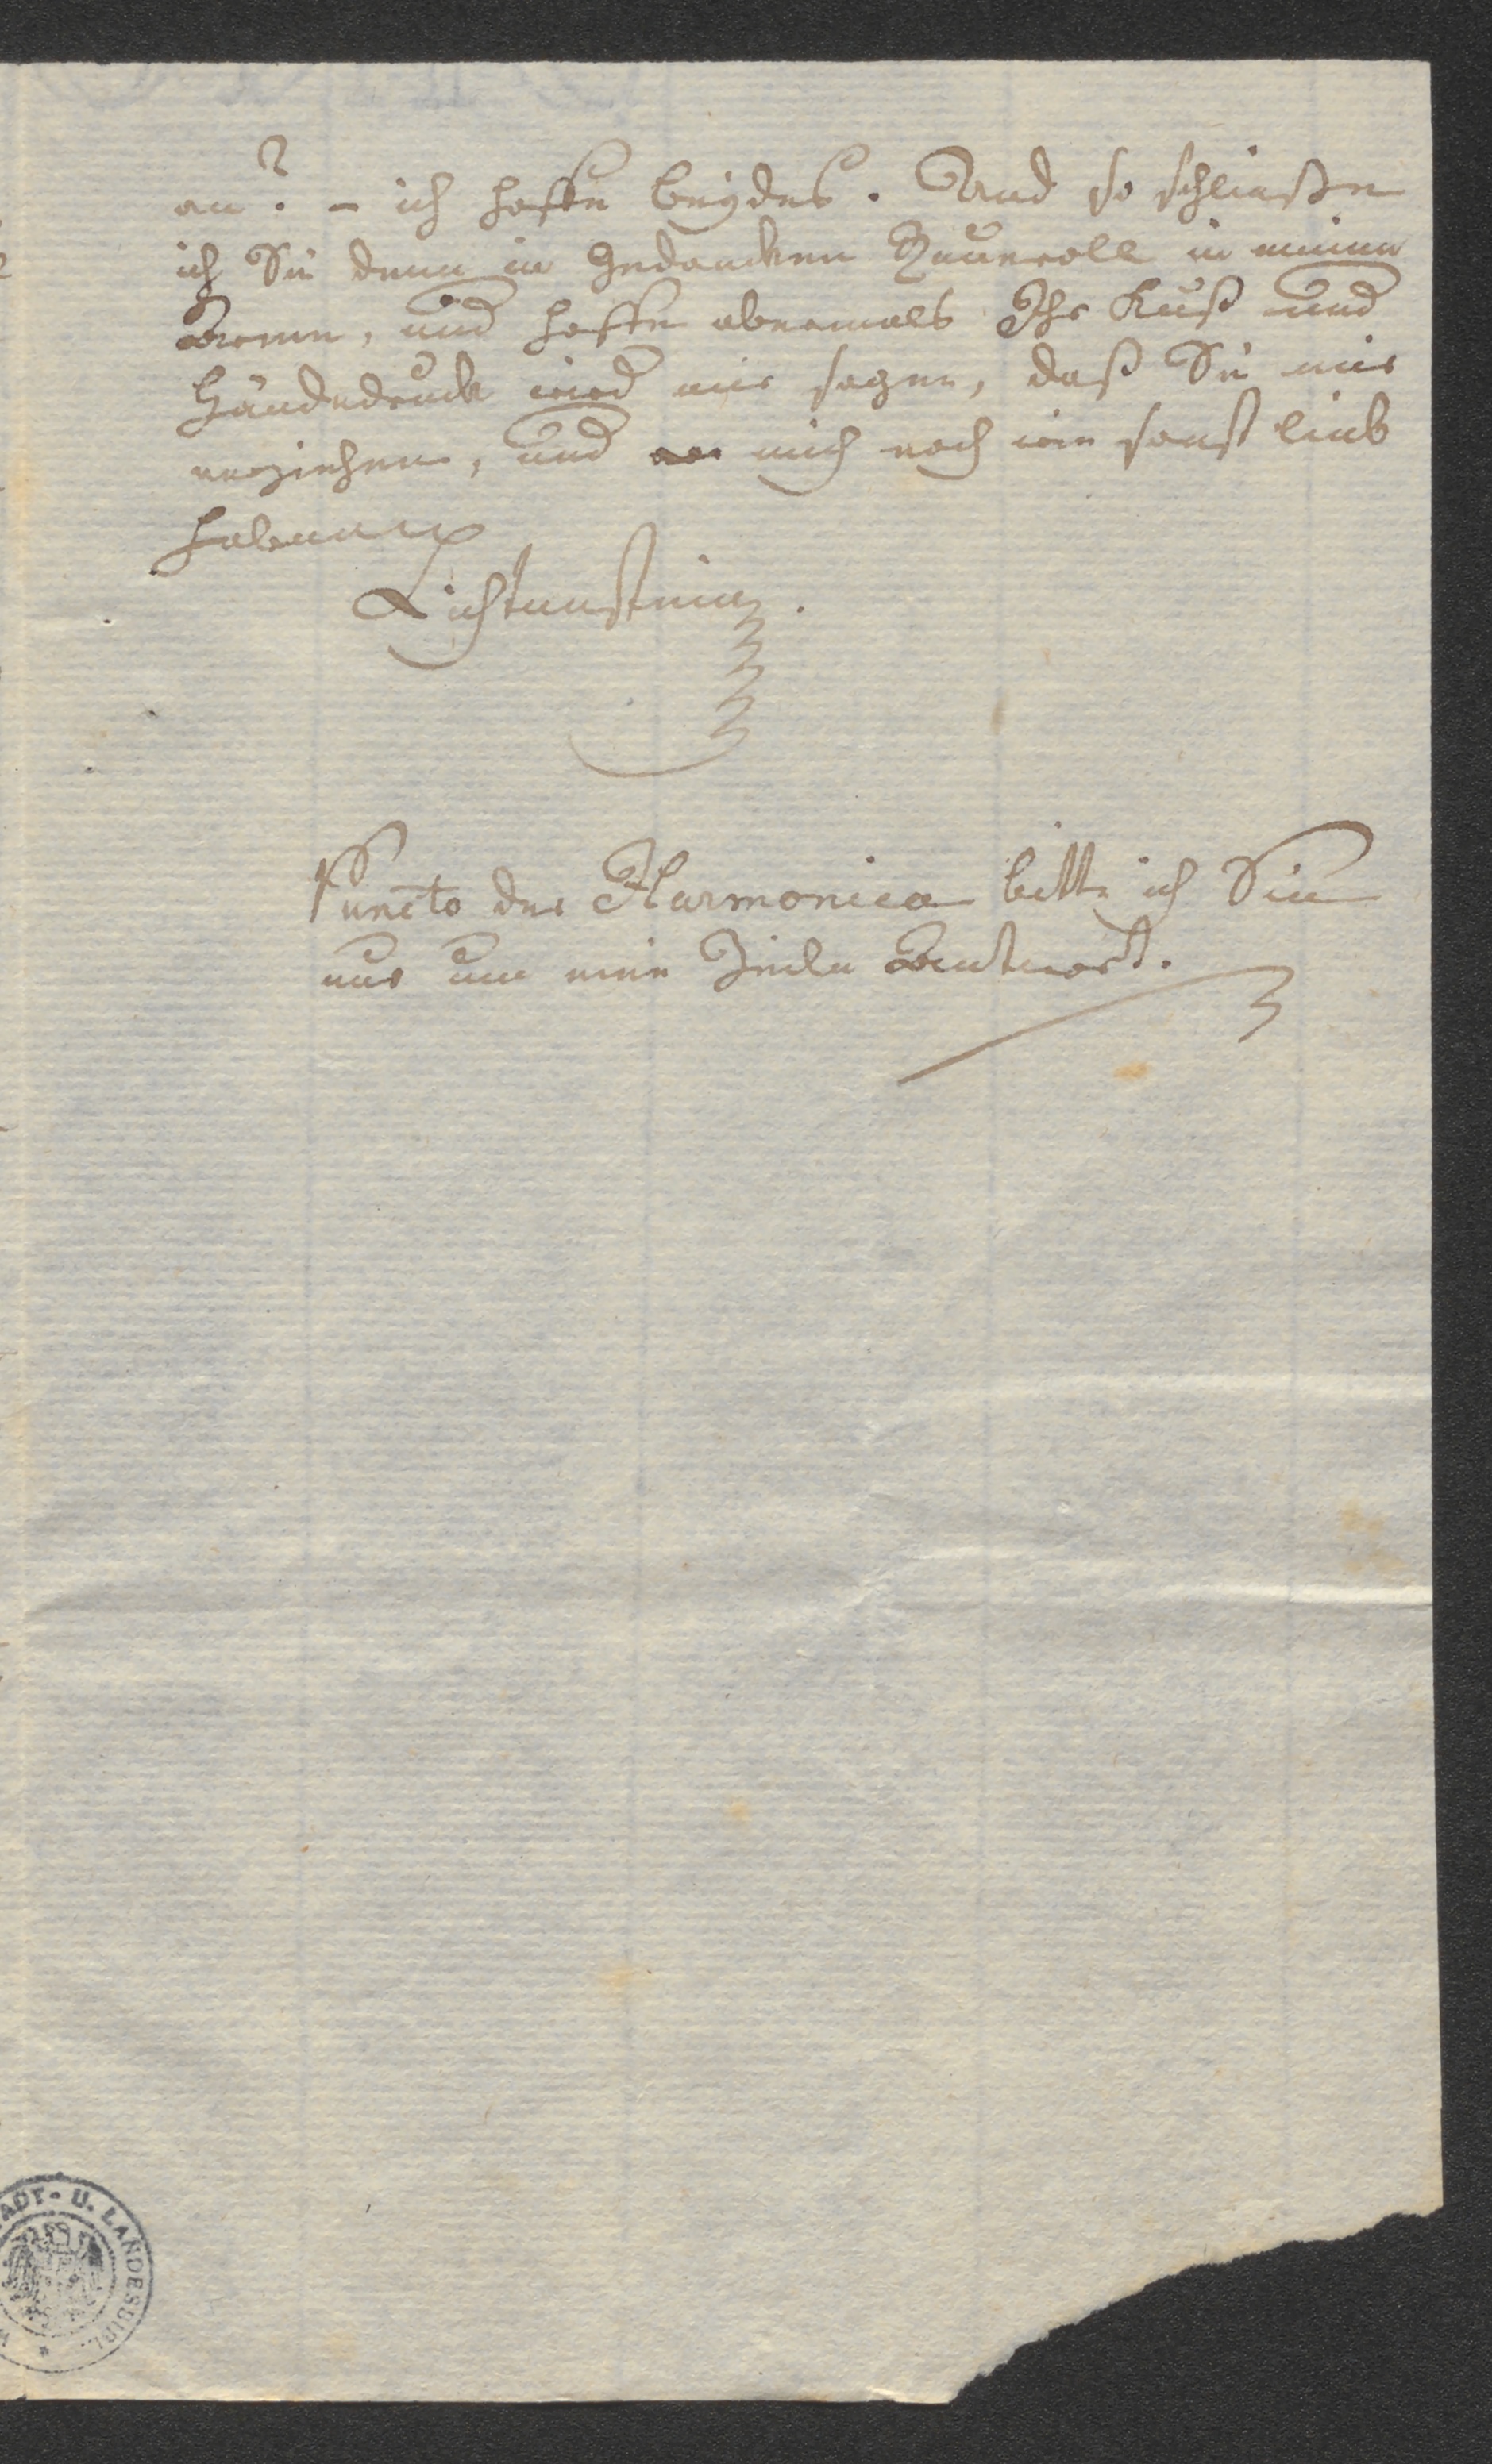 an? – ich hoffe beydes. Und so schließe
ich Sie denn in Gedancken in meine
Arme, und hoffe abermals Ihr Kuß und
Händedruck wird mir sagen, daß Sie mir
verziehen, und mich noch wie sonst lieb
haben
Lichtenstein.
Puncto der Harmonica bitte ich Sie
nur um eine Zeile Antwort.
ADT- U. LANDESBIBL